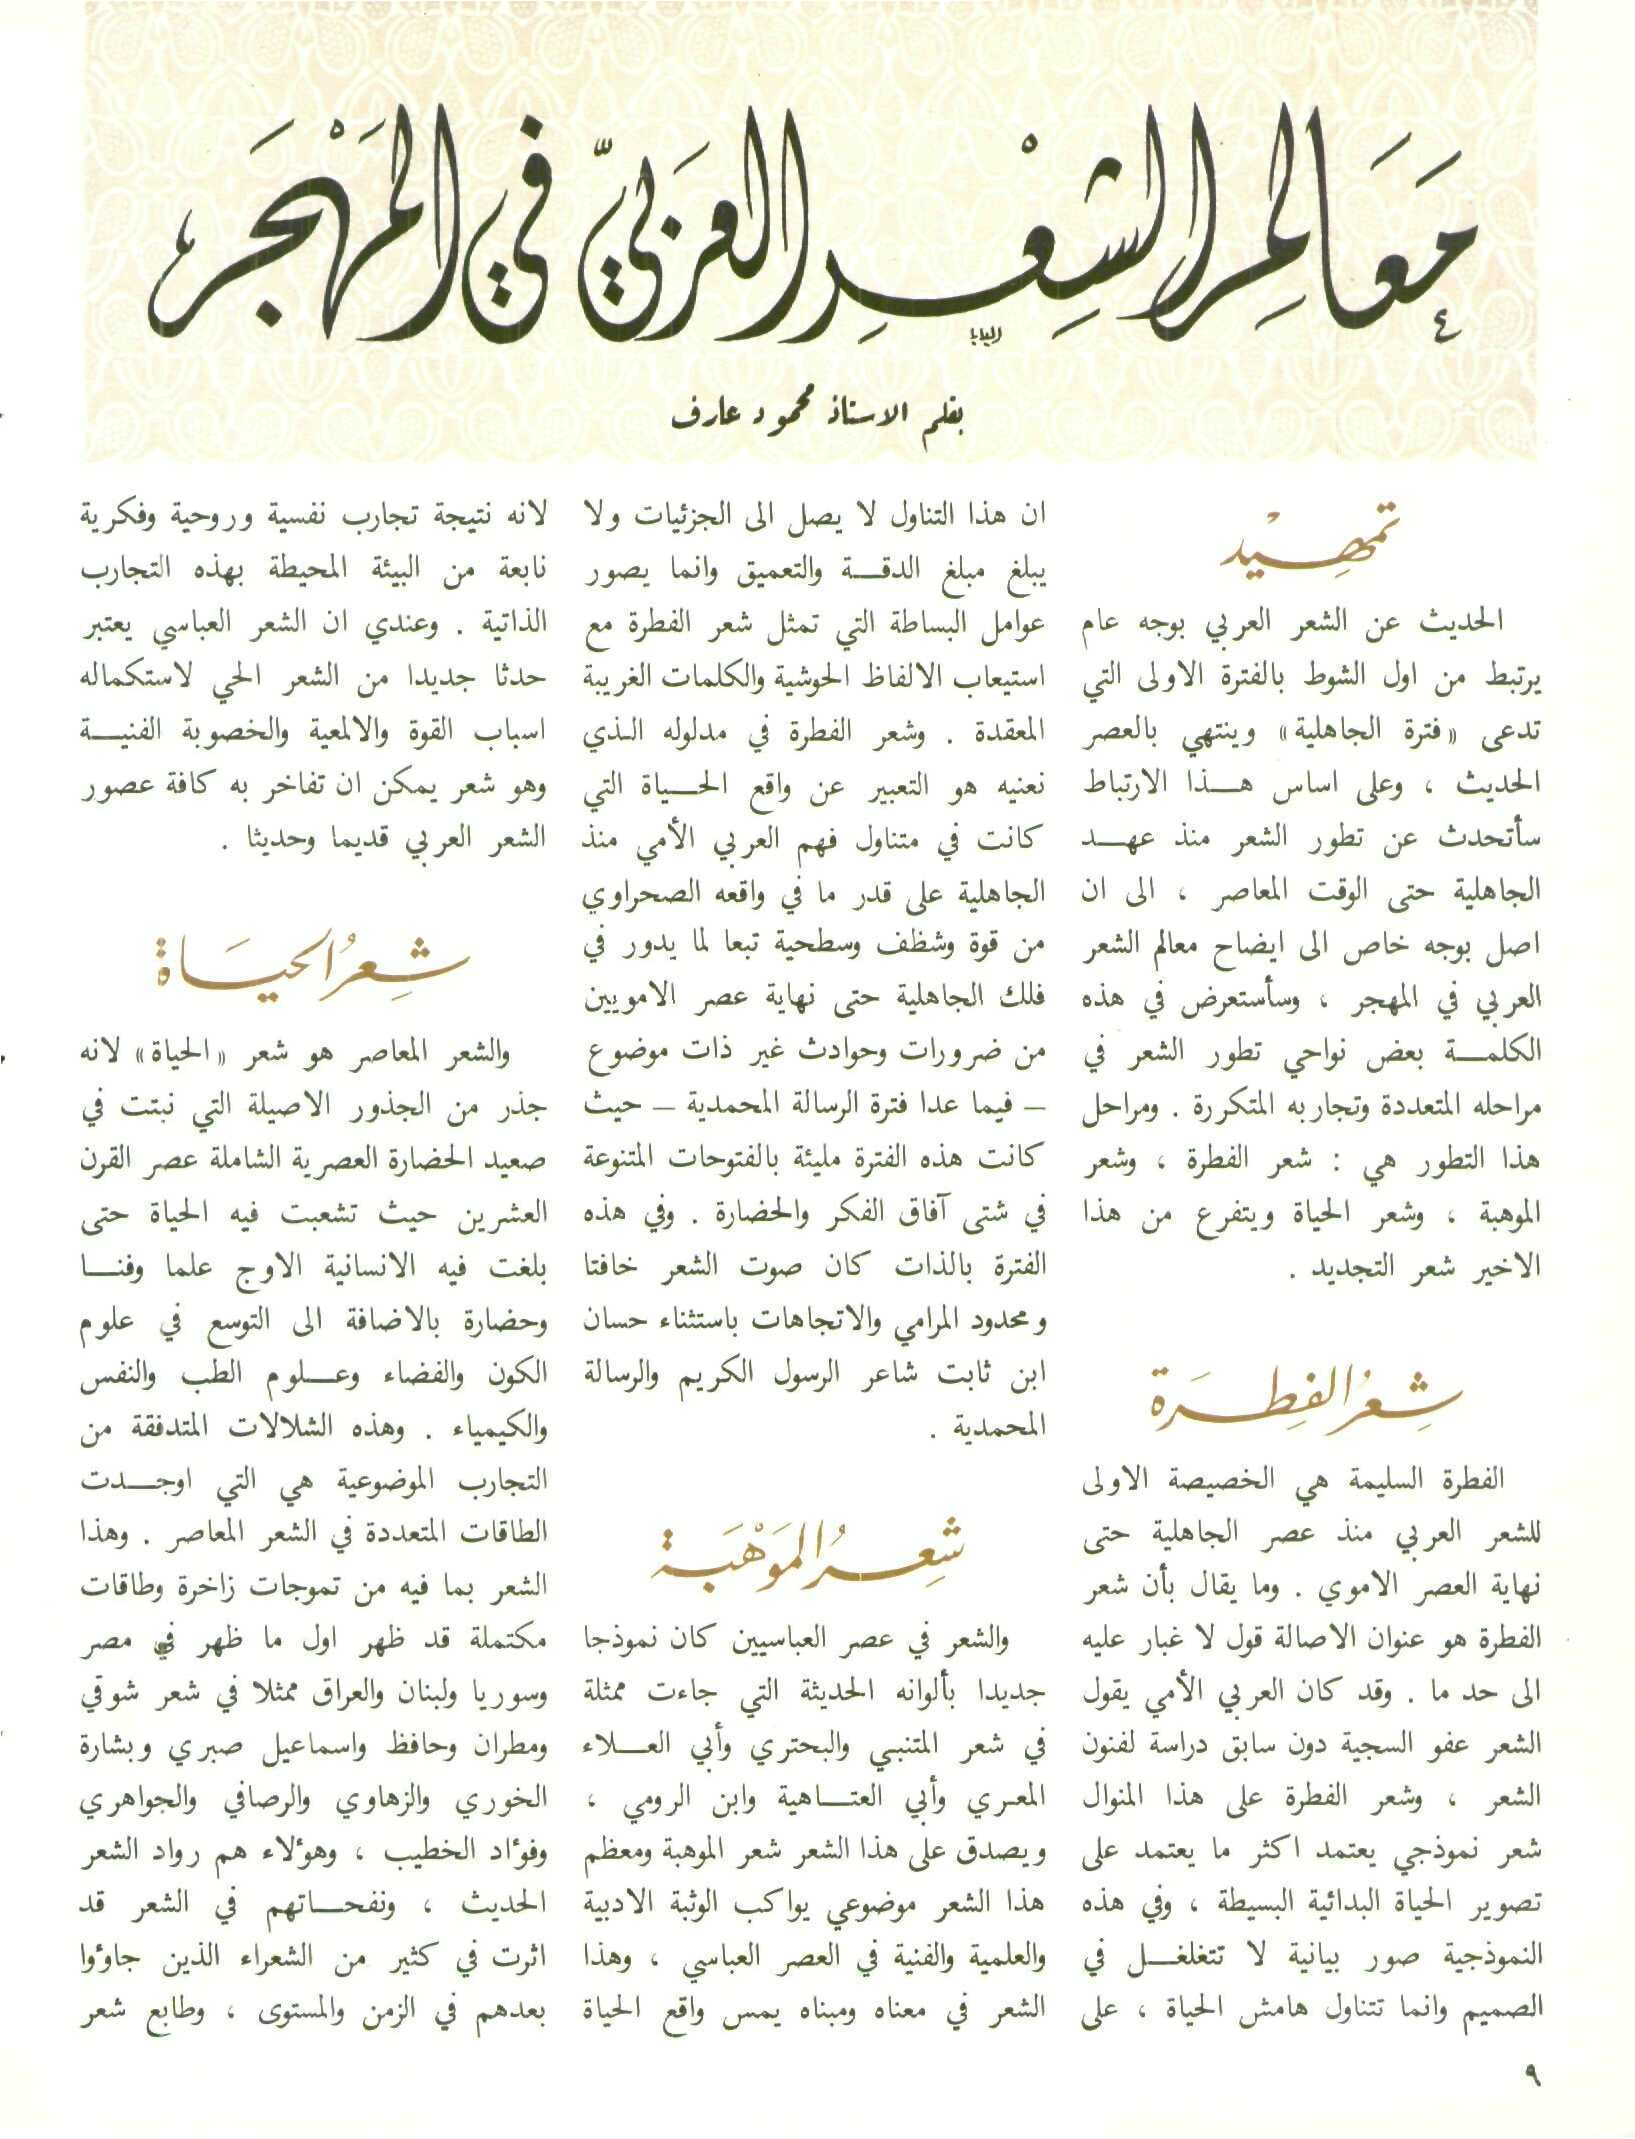 معَالم الشِعْر العَربيّ في المَهْجَر
بقلم الاستاذ محمود عارف
تمهِيْد
الحديث عن الشعر العربي بوجه عام
يرتبط من اول الشوط بالفترة الاولى التي
تدعى «فترة الجاهلية» وينتهي بالعصر
الحديث ، وعلى اساس هــذا الارتباط
سأتحدث عن تطور الشعر منذ عهــد
الجاهلية حتى الوقت المعاصر ، الى ان
اصل بوجه خاص الى ايضاح معالم الشعر
العربي في المهجر ، وسأستعرض في هذه
الكلمــة بعض نواحي تطور الشعر في
مراحله المتعددة وتجاربه المتكررة . ومراحل
هذا التطور هي : شعر الفطرة ، وشعر
الموهبة ، وشعر الحياة ويتفرع من هذا
الاخير شعر التجديد .
شِعرُ الفِطرَة
الفطرة السليمة هي الخصيصة الاولى
للشعر العربي منذ عصر الجاهلية حتى
نهاية العصر الاموي . وما يقال بأن شعر
الفطرة هو عنوان الاصالة قول لا غبار عليه
الى حد ما . وقد كان العربي الأمي يقول
الشعر عفو السجية دون سابق دراسة لفنون
الشعر ، وشعر الفطرة على هذا المنوال
شعر نموذجي يعتمد اكثر ما يعتمد على
تصوير الحياة البدائية البسيطة ، وفي هذه
النموذجية صور بيانية لا تتغلغــل في
الصميم وانما تتناول هامش الحياة ، على
ان هذا التناول لا يصل الى الجزئيات ولا
يبلغ مبلغ الدقــة والتعميق وانما يصور
عوامل البساطة التي تمثل شعر الفطرة مع
استيعاب الالفاظ الحوشية والكلمات الغريبة
المعقدة . وشعر الفطرة في مدلوله الـذي
نعنيه هو التعبير عن واقع الحــياة التي
كانت في متناول فهم العربي الأمي منذ
الجاهلية على قدر ما في واقعه الصحراوي
من قوة وشظف وسطحية تبعا لما يدور في
فلك الجاهلية حتى نهاية عصر الامويين
من ضرورات وحوادث غير ذات موضوع
– فيما عدا فترة الرسالة المحمدية – حيث
كانت هذه الفترة مليئة بالفتوحات المتنوعة
في شتى آفاق الفكر والحضارة . وفي هذه
الفترة بالذات كان صوت الشعر خافتا
ومحدود المرامي والاتجاهات باستثناء حسان
ابن ثابت شاعر الرسول الكريم والرسالة
المحمدية .
شِعرُ المَوْهَبَة
والشعر في عصر العباسيين كان نموذجا
جديدا بألوانه الحديثة التي جاءت ممثلة
في شعر المتنبي والبحتري وأبي العــلاء
المعري وأبي العتــاهية وابن الرومي ،
ويصدق على هذا الشعر شعر الموهبة ومعظم
هذا الشعر موضوعي يواكب الوثبة الادبية
والعلمية والفنية في العصر العباسي ، وهذا
الشعر في معناه ومبناه يمس واقع الحياة
لانه نتيجة تجارب نفسية وروحية وفكرية
نابعة من البيئة المحيطة بهذه التجارب
الذاتية . وعندي ان الشعر العباسي يعتبر
حدثا جديدا من الشعر الحي لاستكماله
اسباب القوة والالمعية والخصوبة الفنيــة
وهو شعر يمكن ان تفاخر به كافة عصور
الشعر العربي قديما وحديثا .
شِعرُ الحيَاة
والشعر المعاصر هو شعر «الحياة» لانه
جذر من الجذور الاصيلة التي نبتت في
صعيد الحضارة العصرية الشاملة عصر القرن
العشرين حيث تشعبت فيه الحياة حتى
بلغت فيه الانسانية الاوج علما وفنــا
وحضارة بالاضافة الى التوسع في علوم
الكون والفضاء وعــلوم الطب والنفس
والكيمياء . وهذه الشلالات المتدفقة من
التجارب الموضوعية هي التي اوجــدت
الطاقات المتعددة في الشعر المعاصر . وهذا
الشعر بما فيه من تموجات زاخرة وطاقات
مكتملة قد ظهر اول ما ظهر في مصر
وسوريا ولبنان والعراق ممثلا في شعر شوقي
ومطران وحافظ واسماعيل صبري وبشارة
الخوري والزهاوي والرصافي والجواهري
وفؤاد الخطيب ، وهؤلاء هم رواد الشعر
الحديث ، ونفحــاتهم في الشعر قد
اثرت في كثير من الشعراء الذين جاؤوا
بعدهم في الزمن والمستوى ، وطابع شعر
٩